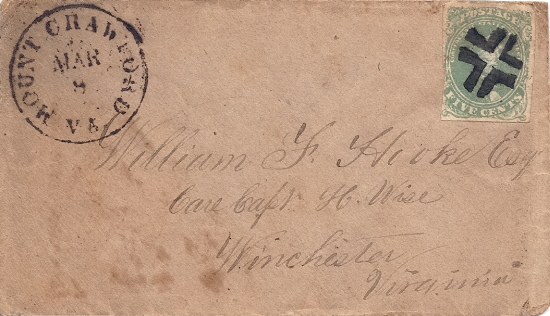 MOUNT CRAWFORD
MAR
8
VA
POSTAGE
FIVE CENTS
William F. Hooke Esq
Care Capt. H. Wise
Winchester
Virginia